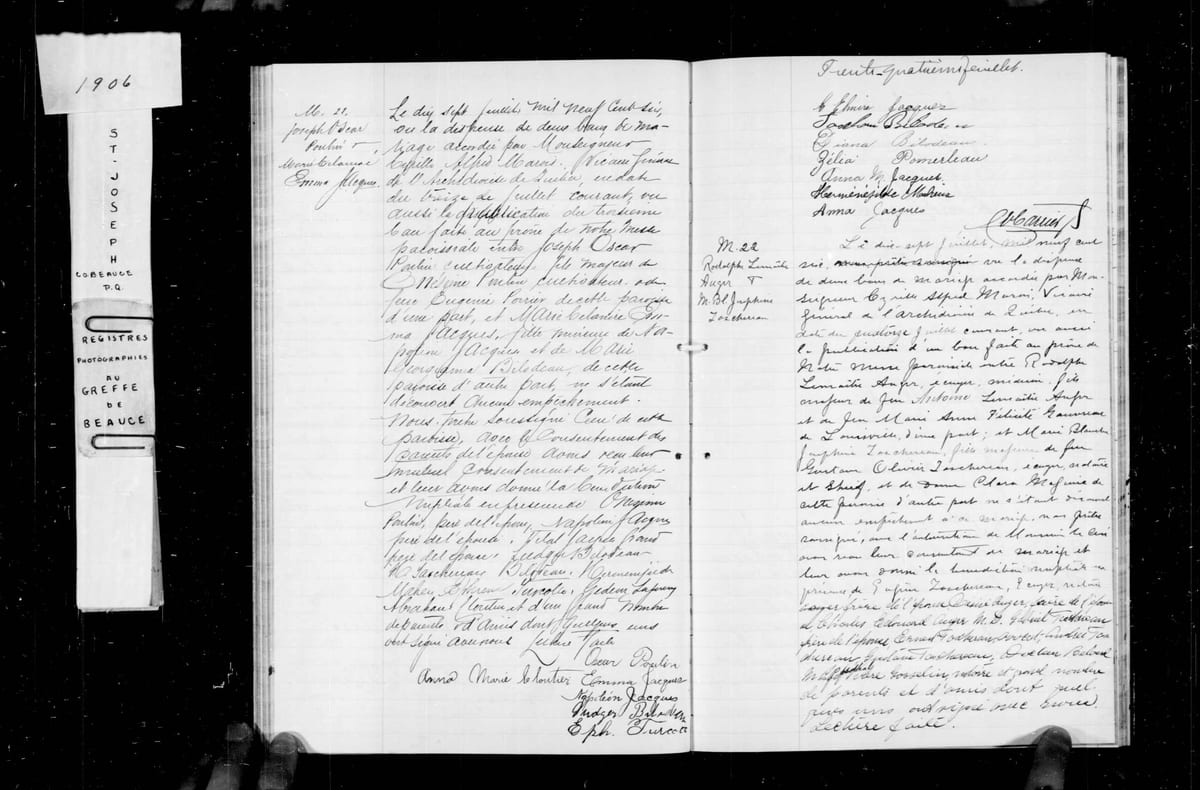 1906
ST-JOSEPH
CO. BEAUCE
P.Q.
REGISTRES
PHOTOGRAPHIES
AU
GREFFE
de
BEAUCE
M. 21.
Joseph Oscar
Poulin &
Marie Célanise
Emma Jacques
Le dix sept juillet, mil neuf cent six,
vu la dispense de deux bans de ma-
riage accordée par Monseigneur
Cyrille Alfred Marois, Vicaire Général
de l'Archidiocèse de Québec, en date
du treize de juillet courant, vu
aussi la publication du troisième
ban faite au prône de notre messe
paroissiale entre Joseph Oscar
Poulin cultivateur fils majeur de
Onézime Poulin cultivateur et de
feue Eugénie Poirier de cette paroisse
d'une part, et Marie Célanire Em-
ma Jacques, fille mineure de Na-
poléon Jacques et de Marie
Georgianna Bilodeau, de cette
paroisse d'autre part, ne s'étant
découvert aucun empêchement.
Nous, prêtre soussigné Curé de cette
paroisse, avec le consentement des
parents de l'épouse avons reçu leur
mutuel consentement de mariage
et leur avons donné la bénédiction
nuptiale en présence d'Onézime
Poulin, père de l'époux, Napoléon Jacques
père de l'épouse, Vital Jacques Grand
père de l'épouse, Gudger Bilodeau
Bilodeau, Hermenégilde
Maheu, Ephrem Turcotte, Gédéon
Abraham Cloutier et d'un grand nombre
de parents & d'amis dont quelques uns
ont signé avec nous Lecture faite
Oscar Poulin
Anna Marie Cloutier Emma Jacques
Napoléon Jacques
Gudger Bilodeau
Eph. Turcotte
Trente-quatrième feuillet.
Elmire Jacques
Bilodeau
Diana Bilodeau
Zélia Pomerleau
Anna M. Jacques
Herménégilde Maheux
Anna Jacques
M. 22
Rodolphe Lemaître
Auger &
M. Bl. Joséphine
Taschereau
Le dix-sept juillet, mil neuf cent
six, vu la dispense
de deux bans de mariage accordée par Mon-
seigneur Cyrille Alfred Marois, Vicaire
Général de l'archidiocèse de Québec, en
date du quatorze juillet courant, vu aussi
la publication d'un ban faite au prône de
Notre Messe paroissiale entre Rodolphe
Lemaître Auger, écuyer, médecin, fils
majeur de feu Antoine Lemaître Auger
et de feu Marie Anne Félicité Gauvreau
de Louiseville, d'une part; et Marie Blanche
Joséphine Taschereau, fille majeure de feu
Gustave Olivier Taschereau, écuyer, notaire
et Shérif, et de Dame Clara Maguire de
cette paroisse d'autre part ne s'étant découvert
aucun empêchement à ce mariage, nous prêtre
soussigné, avec l'autorisation de Monsieur le Curé
avons reçu leur consentement de mariage et
leur avons donné la bénédiction nuptiale en
présence de Eugène Taschereau, Ecuyer, notaire
frère de l'épouse, Auger, frère de l'époux
et Charles Edouard Auger M.D. Taschereau
frère de l'épouse Ernest Taschereau, Tas-
chereau, Gustave Taschereau,
Gosselin, notaire et grand nombre
de parents et d'amis dont quel-
ques uns ont signé avec nous.
Lecture faite.